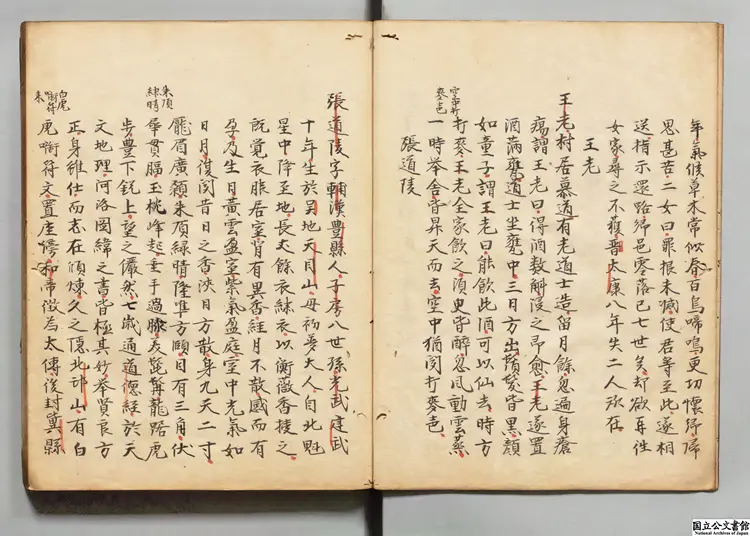 年氣候草木常似春百鳥啼鳴更切懷鄉歸
思甚苦二女曰罪根未滅使君等至此遂相
送指示還路鄉邑零落已七世矣却欲再往
女家尋之不獲晉太康八年失二人所在
王老
王老村居慕道有老道士造留月餘忽遍身瘡
瘍謂王老曰得酒数斛浸之即愈王老遂置
酒滿甕道士坐甕中三日方出鬚髮皆黒顔
如童子謂王老曰能飲此酒可以仙去時方
打麥王老全家飲之須臾皆醉忽風動雲蒸
空中打
麥色
一時举舎皆昇天而去空中猶聞打麥色
張道陵
張道陵字輔漢豊縣人子房八世孫光武建武
十年生於吴地天目山母初夢天人自北魁
星中降至地長丈餘衣綉衣以蘅薇香授之
既覺衣服居室皆有異香経月不散感而有
孕及生日黄雲盈室紫氣盈庭室中光氣如
日月復聞昔日之香浹日方散身九尺二寸
厖眉廣顙朱頂緑睛隆準方頤目有三角伏
朱頂
緑睛
犀貫腦玉枕峰起垂手過膝美髭髯龍踞虎
步豊下鋭上望之儼然七歳通道德経於天
文地理河洛圖緯之書皆極其妙举賢良方
正身雖仕而志在修煉久之隱北邙山有白
白虎
啣符
来
虎啣符文置座傍和帝徴為太傅後封冀縣
国立公文書館
National Archives of Japan